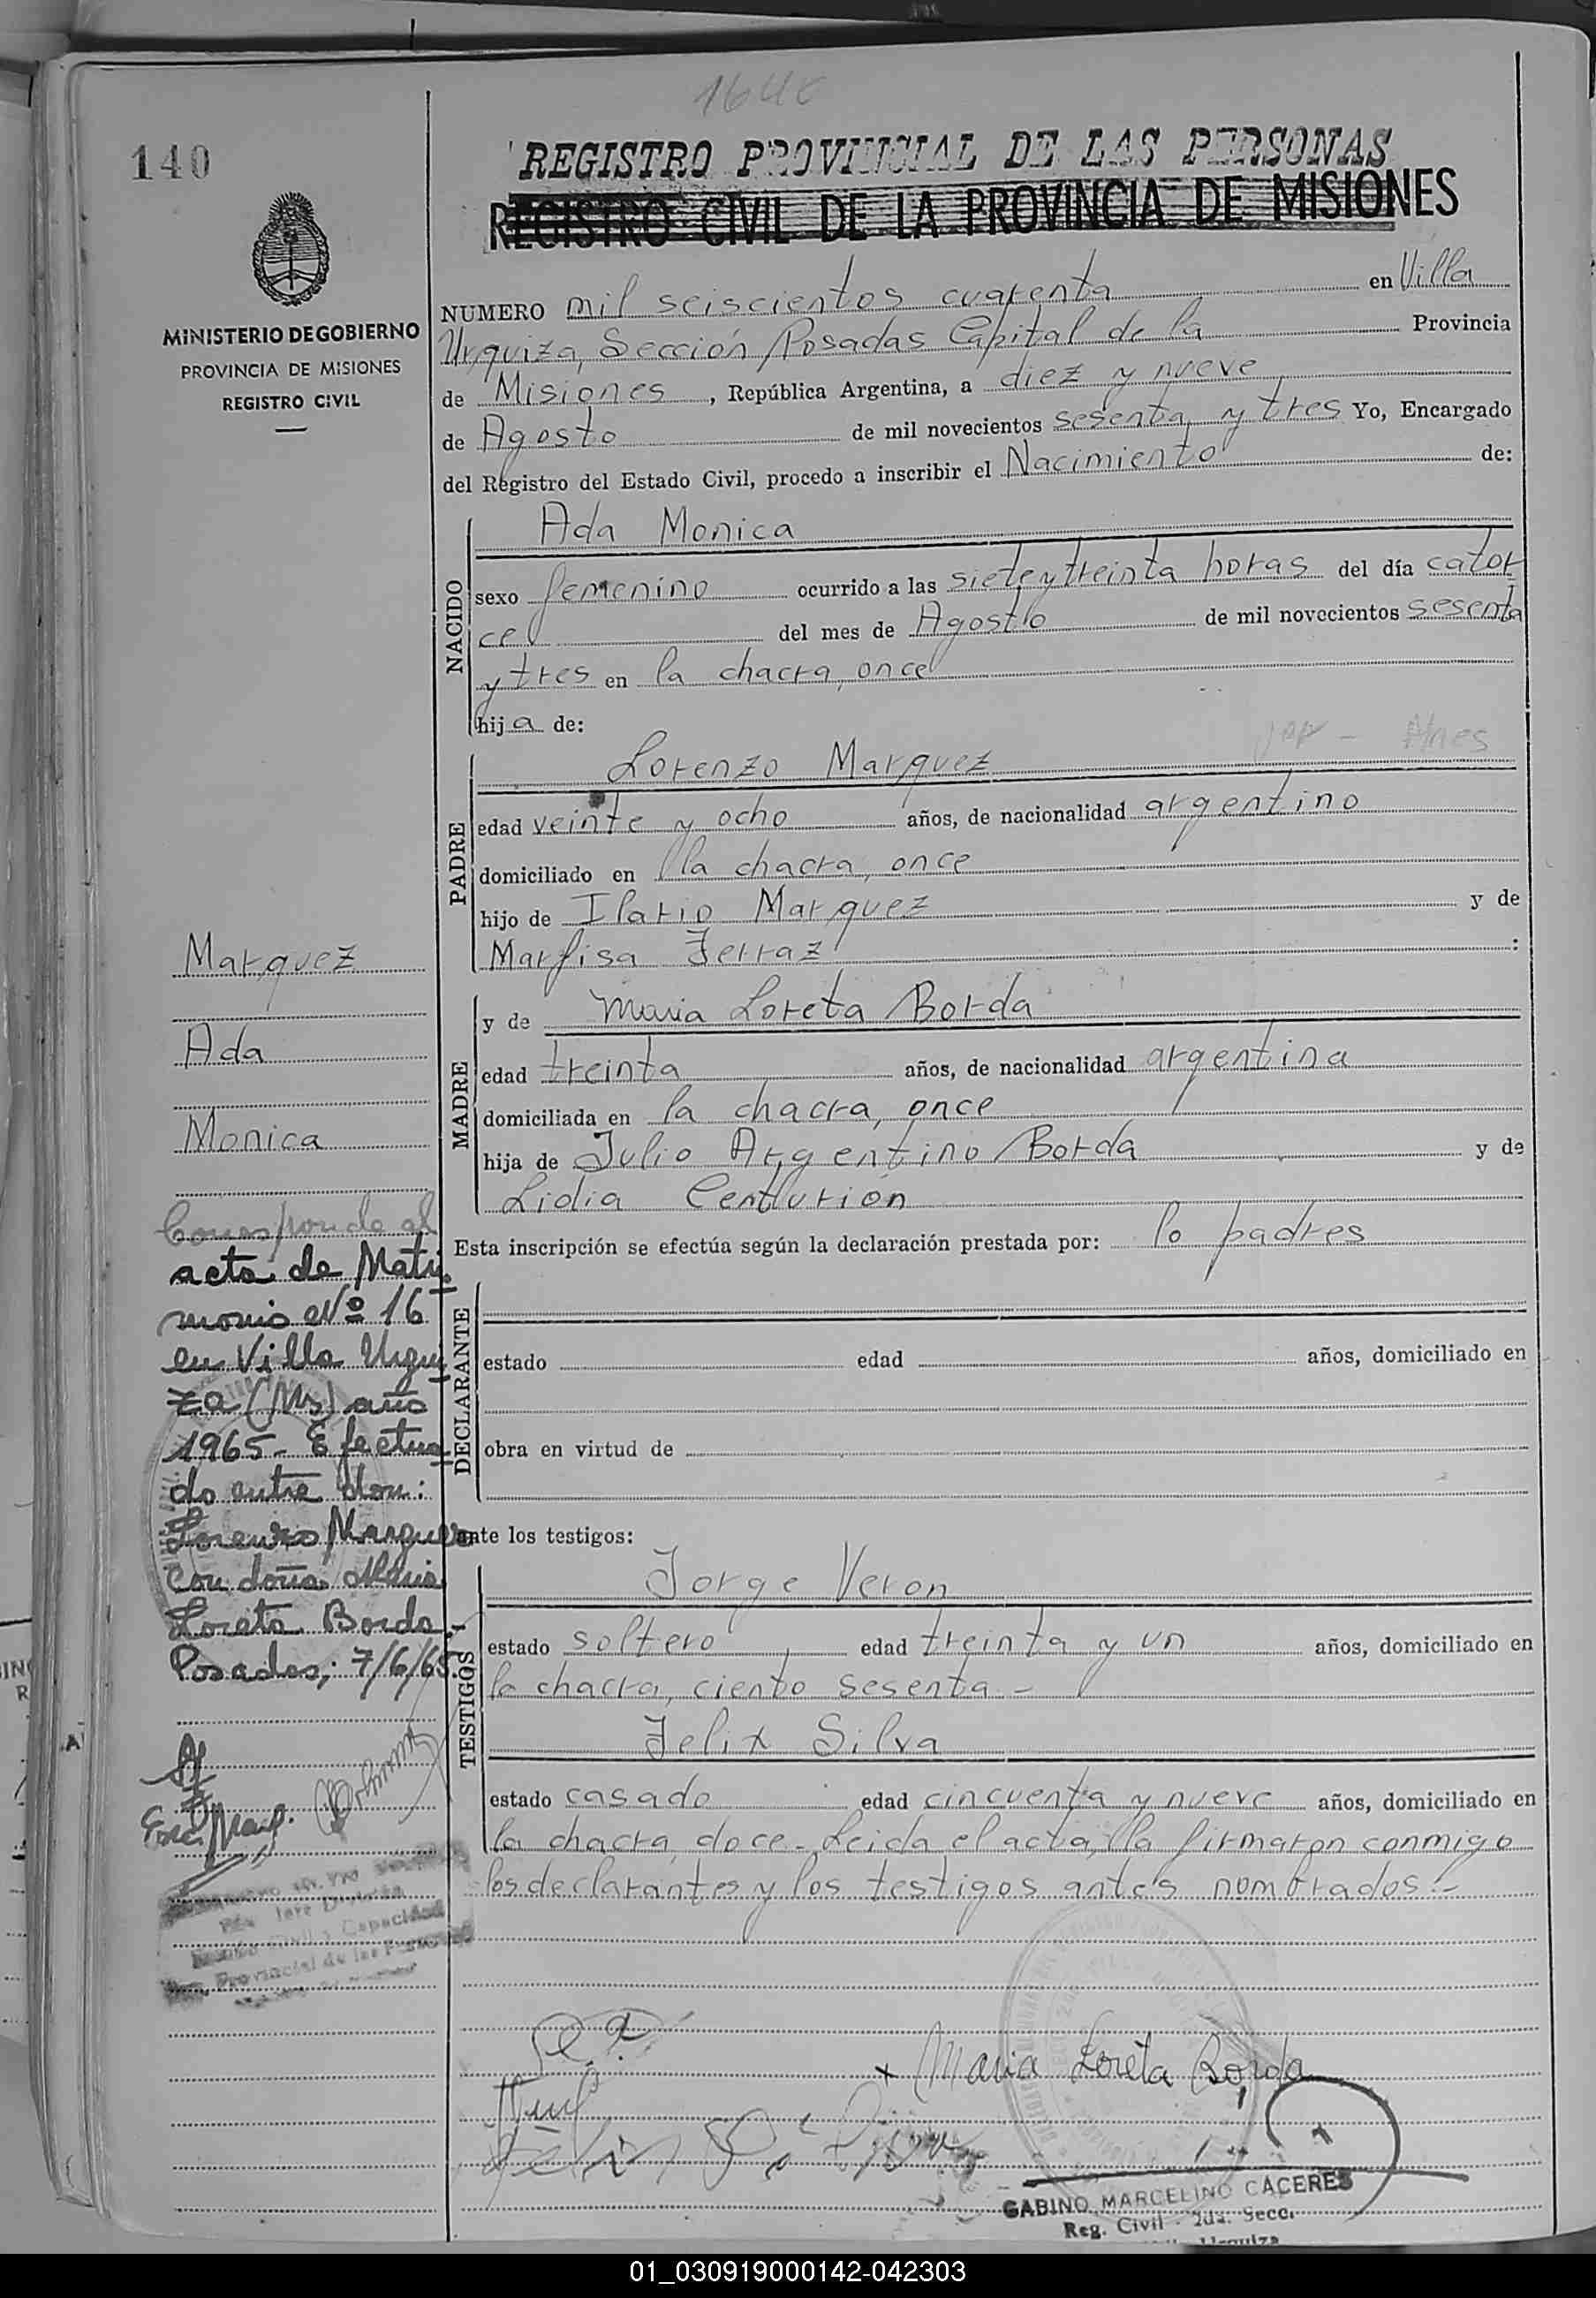 164c
140
REGISTRO PROVINCIAL DE LAS PERSONAS
REGISTRO CIVIL DE LA PROVINCIA DE MISIONES
MINISTERIO DE GOBIERNO
PROVINCIA DE MISIONES
REGISTRO CIVIL
NUMERO mil seiscientos cuarenta en Villa
Urquiza, Sección Posadas Capital de la Provincia
de Misiones, República Argentina, a diez y nueve
de Agosto de mil novecientos sesenta y tres Yo, Encargado
del Registro del Estado Civil, procedo a inscribir el Nacimiento de:
NACIDO
Ada Monica
sexo femenino ocurrido a las siete y treinta horas del día cator
ce del mes de Agosto de mil novecientos sesenta
y tres en la chacra, once
hija de:
PADRE
Lorenzo Marquez
edad veinte y ocho años, de nacionalidad argentino
domiciliado en la chacra, once
hijo de Ilario Marquez y de
Marfisa Ferraz :
MADRE
y de Maria Loreta Borda
edad treinta años, de nacionalidad argentina
domiciliada en la chacra, once
hija de Julio Argentino Borda y de
Lidia Centurión
Esta inscripción se efectúa según la declaración prestada por: lo padres
DECLARANTE
estado edad años, domiciliado en
obra en virtud de
ante los testigos:
TESTIGOS
Jorge Veron
estado soltero edad treinta y un años, domiciliado en
la chacra, ciento sesenta -
Felix Silva
estado casado edad cincuenta y nueve años, domiciliado en
la chacra, doce - Leida el acta, la firmaron conmigo
los declarantes y los testigos antes nombrados.-
Marquez
Ada
Monica
Corresponde al
acta de Matri
monio Nº 16
en Villa Urqui
za (Ms) año
1965- Efectua
do entre don:
Lorenzo Marquez
con doña Maria
Loreta Borda.
Posadas, 7/6/65.
Civil y Capacidad
Provincial de las Personas
x Maria Loreta Borda
GABINO MARCELINO CACERES
Reg. Civil - 2da. Secc.
Urquiza
01_030919000142-042303